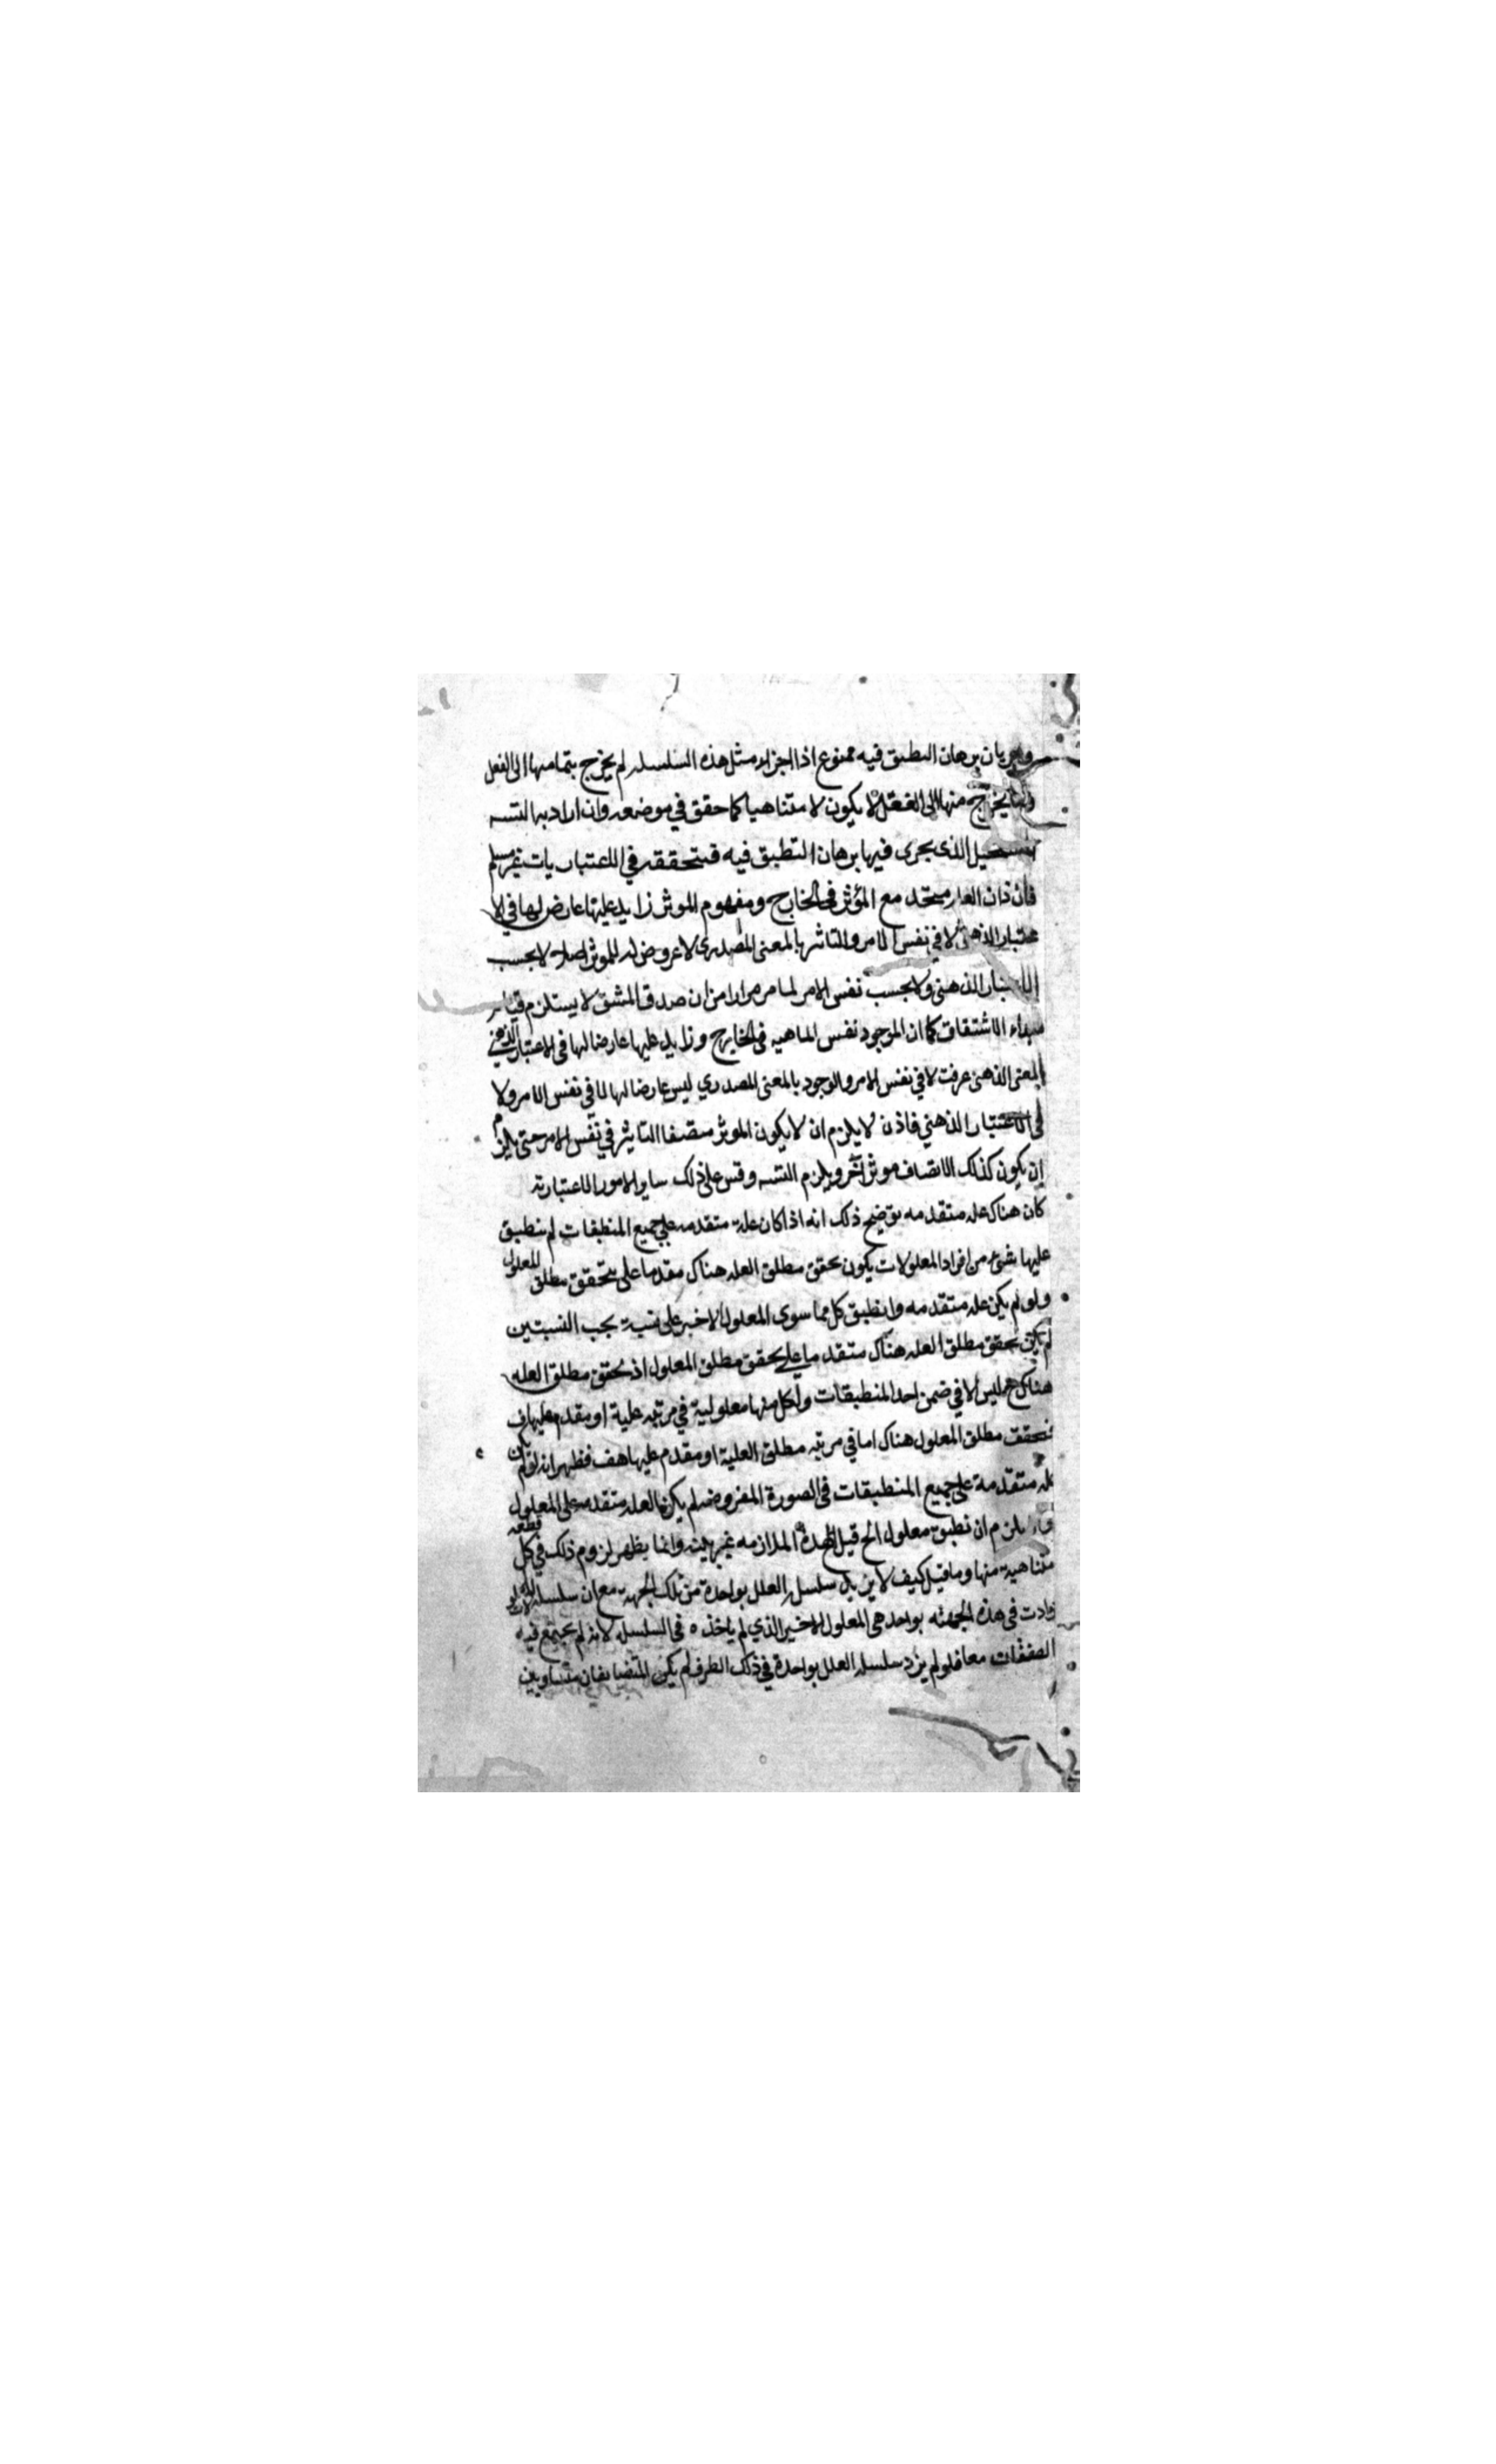 وجريان برهان التطبيق فيه ممنوع اذ اجزاء مثل هذه السلسله لم يخرج بتمامها الى الفعل
وما يخرج منها الى الفعل لا يكون لا متناهيا كما حقق في موضعه وان اراد به التسـه
المستحيل الذى يجرى فيها برهان التطبيق فيه فتحققه في الاعتباريات غير مسلم
فان ذات العله متحد مع المؤثر فى الخارج ومفهوم الموثر زايد عليها عارض لها في الا
عتبار الذهنى لا في نفس الامر والتاثير بالمعنى المصدرى لا عروض له للموثر اصلا لا بحسب
الاعتبار الذهنى ولا بحسب نفس الامر لما مر مرارا من ان صدق المشتق لا يستلزم قيام
مبداء الاشتقاق كما ان الموجود نفس الماهيه فى الخارج وزايد عليها عارضا لها فى الاعتبار الذهني
بالمعنى الذهنى عرفت لا في نفس الامر والوجود بالمعنى المصدري ليس عارضا لها لا في نفس الامر ولا
فى الاعتبار الذهني فاذن لا يلزم ان لا يكون الموثر متصفا بالتاثير في نفس الامر حتى يلزم
ان يكون كذلك الاتصاف موثر آخر ويلزم التسـه وقس على ذلك ساير الامور الاعتباريه
كان هناك عله متقدمه توضيح ذلك انه اذا كان علة متقدمه على جميع المنطبقات لم ينطبق
عليها شىء من افراد المعلولات يكون تحقق مطلق العله هناك مقدما على تحقق مطلق المعلول
ولو لم يكن عله متقدمه وانطبق كل مما سوى المعلول الاخير على نسبة بجب النسبتين
لم يكن تحقق مطلق العله هناك متقدما على تحقق مطلق المعلول اذ تحقق مطلق العله
هناك ح ليس الا في ضمن احد المنطبقات ولكل منها معلولية في مرتبه علية او مقدم عليها ف
فتحقق مطلق المعلول هناك اما في مرتبه مطلق العلية او مقدم عليها هف فظهر انه لو لم يكن
عله متقدمة على جميع المنطبقات فى الصورة المفروضه لم يكن العله متقدمه على المعلول
يلزم ان تطبق معلول الخ قيل هذه الملازمه غير بينه وانما يظهر لزوم ذلك في كل قطعه
متناهية منها وما قيل كيف لا يزيد سلسله العلل بواحدة من تلك الجهه مع ان سلسله المعلولات
زادت فى هذه الجهته بواحد هى المعلول الاخير الذي لم ياخذه فى السلسله لانه لم يجتمع فيه
الصفقات معا فلو لم يزد سلسله العلل بواحدة في ذلك الطرف لم يكن المتضايفان متساويين